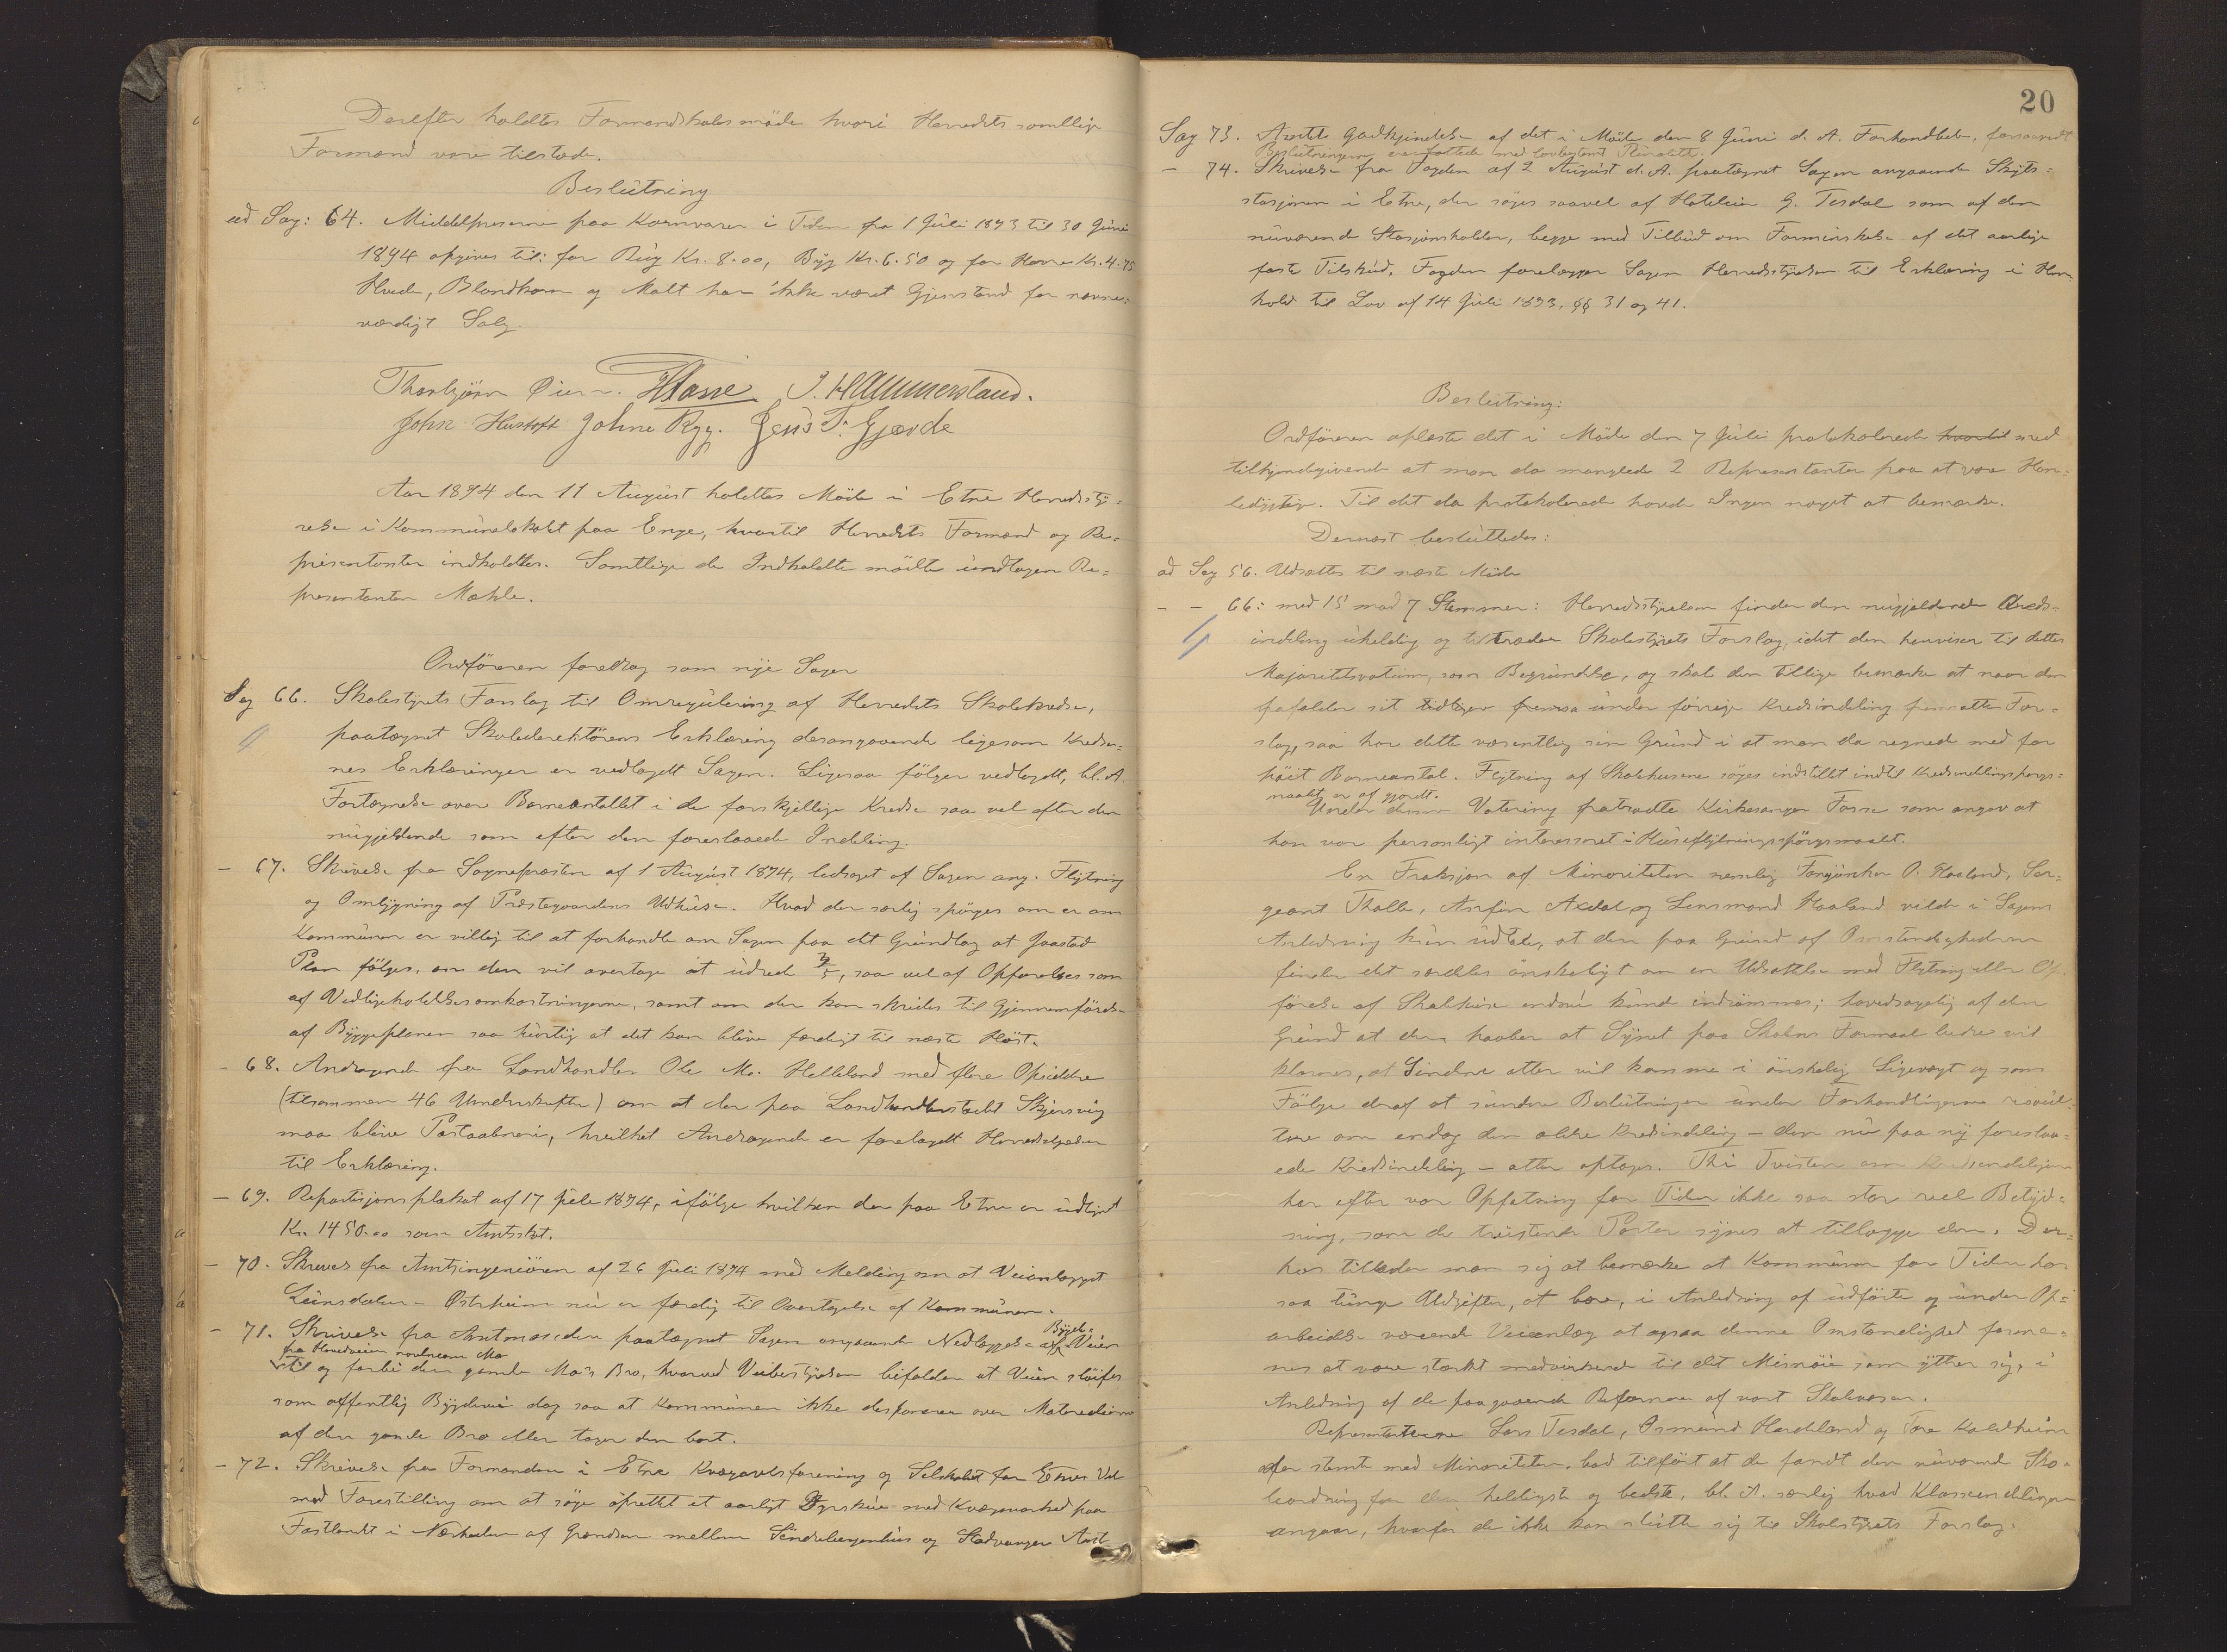 Derefter holdtes Formandskabsmöde hvori Herredets samtlige
Formænd vare tilstede.
Beslutning
ad Sag: 64. Middelpriserne paa Kornvarer i Tiden fra 1 Juli 1893 til 30 Juni
1894 opgives til: for Rúg Kr. 8.00, Byg Kr. 6.50 og for Havre Kr. 4.75
Hvede, Blandkorn og Malt har ikke været Gjenstand for nævne=
værdigt Salg.
Thorbjörn Øien. HFosse J. Hammersland.
John Hustoft Johne Rygg. Jens T. Gjerde
Aar 1894 den 11 August holdtes Möde i Etne Herredssty=
relse i Kommunelokalet paa Enge, hvortil Herredets Formænd og Re=
præsentanter indkaldtes. Samtlige de Indkaldte mödte undtagen Re=
præsentanten Mæhle.
Ordföreren foredrog som nye Sager
Sag 66. Skolestyrets Forslag til Omregulering af Herredets Skolekredse,
paategnet Skoledirektörens Erklæring desangaaende ligesom Kredse=
nes Erklæringer er vedlagdt Sagen. Ligesaa fölger vedlagdt, bl. A.
Fortegnelse over Barneantallet i de forskjellige Kredse saa vel efter den
nugjeldende som efter den foreslaaede Inddeling.
— 67. Skrivelse fra Sognepræsten af 1 August 1894, ledsaget af Sagen ang. Flytning
og Ombygning af Præstegaardens Udhuse. Hvad der særlig spörges om er om
Kommunen er villig til at forhandle om Sagen paa det Grundlag at Jaastad
Plan fölges, om den vil overtage at udrede 3/5, saa vel af Opförelses som
af Vedligeholdelsesomkostningerne, samt om der kan skrides til Gjennemförelse
af Byggeplanen saa hurtig at det kan blive færdigt til næste Höst.
— 68. Andragende fra Landhandler Ole M. Helleland med flere Opsiddere
(tilsammen 46 Underskrifter) om at der paa Landhandlerstedet Skjersvig
maa blive Postaabneri, hvilket Andragende er forelagdt Herredsstyrelsen
til Erklæring.
— 69. Repartisjonsplakat af 17 Juli 1894, ifölge hvilken der paa Etne er udlignet
Kr. 1450.00 som Amtsskat.
— 70. Skrivelse fra Amtsingeniören af 26 Juli 1894 med Melding om at Veianlægget
Lunsdalen - Østrheim nu er færdig til Overtagelse af Kommunen.
— 71. Skrivelse fra Amtmanden paategnet Sagen angaaende Nedlæggelse af Bygde=Veien
fra Hovedveien nordenom Mo
til og forbi den gamle Mo's Bro, hvorved Veibestyrelsen bifalder at Veien slöifes
som offentlig Bygdevei dog saa at Kommunen ikke disponerer over Materialerne
af den gamle Bro eller tager den bort.
— 72. Skrivelse fra Formanden i Etne Kvægavlsforening og Selskabet for Etnes Vel
med Forestilling om at söge oprettet et aarligt Dyrskue med Kvægmarked paa
Fastlandet i Nærheden af Grændsen mellem Söndrebergenhus og Stavanger Amt
20
Sag 73. Amtets Godkjendelse af det i Möde den 8 Juni d. A. Forhandlede, forsaavidt
Beslutningerne er fattede med lovbestemt Pluralitet.
— 74. Skrivelse fra Fogden af 2 August d. A. paategnet Sagen angaaende Skyts=
stasjonen i Etne, der söges saavel af Hoteleier G. Tesdal som af den
nuværende Stasjonsholder, begge med Tilbud om Formindskelse af det aarlige
faste Tilskud. Fogden forelægger Sagen Herredsstyrelsen til Erklæring i Hen=
hold til Lov af 14 Juli 1893, §§ 31 og 41.
Beslutning:
Ordföreren oplæste det i Möde den 7 Juli protokollerede hvortil med
tilkjendegivende at man da manglede 2 Repræsentanter paa at være
. Til det da protokollerede havde Ingen noget at bemærke.
Dernæst besluttedes:
ad Sag 56. Udsættes til næste Möde
— — 66: med 15 mod 7 Stemmer: Herredsstyrelsen finder den nugjeldende Kreds=
inddeling uheldig og tiltræder Skolestyrets Forslag, idet den henviser til dettes
Majoritetsvotum, som Begrundelse, og skal den tillige bemærke at naar den
frafalder sit tidligere fremsa under forrige Kredsinddeling fremsatte For=
slag, saa har dette væsentlig sin Grund i at man da regnede med for
höit Barneantal. Flytning af Skolehusene söges indstillet indtil Kredsinddelingsspörgs=
maalet er afgjordt.
Under denne Votering fratraadte Kirkesanger Fosse som angav at
han var personligt interesseret i Huseflytningsspörgsmaalet.
En Fraksjon af Minoriteten nemlig Forsjunker O. Haaland, Ser=
geant Tholle, Arnfin Axdal og Lensmand Haaland vilde i Sagens
Anledning kun udtale, at den paa Grund af Omstændighederne
finder det saaledes önskeligt om en Udsættelse med Flytning eller Op=
förelse af Skolehuse endnu kunde indrömmes; hovedsagelig af den
Grund at den haaber at Synet paa Skolens Formaal bedre vil
klarnes, at Sindene atter vil komme i önskelig Ligevægt og som
Fölge deraf at sundere Beslutninger under Forhandlingerne resul=
tere om endog den ældre Kredsinddeling - den nu paa ny foreslaa=
ede Kredsinddeling - atter optages. Thi Tvisten om Kredsinddelingen
har efter vor Opfatning for Tiden ikke saa stor reel Betyd=
ning, som de tvistende Parter synes at tillægge den. Der=
hos tillader man sig at bemærke at Kommunen for Tiden har
saa tunge Udgifter, at bære, i Anledning af udförte og under Op=
arbeidelse værende Veianlæg at ogsaa denne Omstændighed forme=
nes at være stærkt medvirkende til det Misnöie som ytter sig, i
Anledning af de paagaaende Reformer af vort Skolevæsen.
Repræsentanterne Lars Tesdal, Osmund Hardeland og Tore Kaldheim
der stemte med Minoriteten, bad tilfört at de fandt den nuværende Sko=
leordning for den heldigste og bedste, bl. A. særlig hvad Klasseinddelingen
angaar, hvorfor de ikke kan slutte sig til Skolestyrets Forslag.